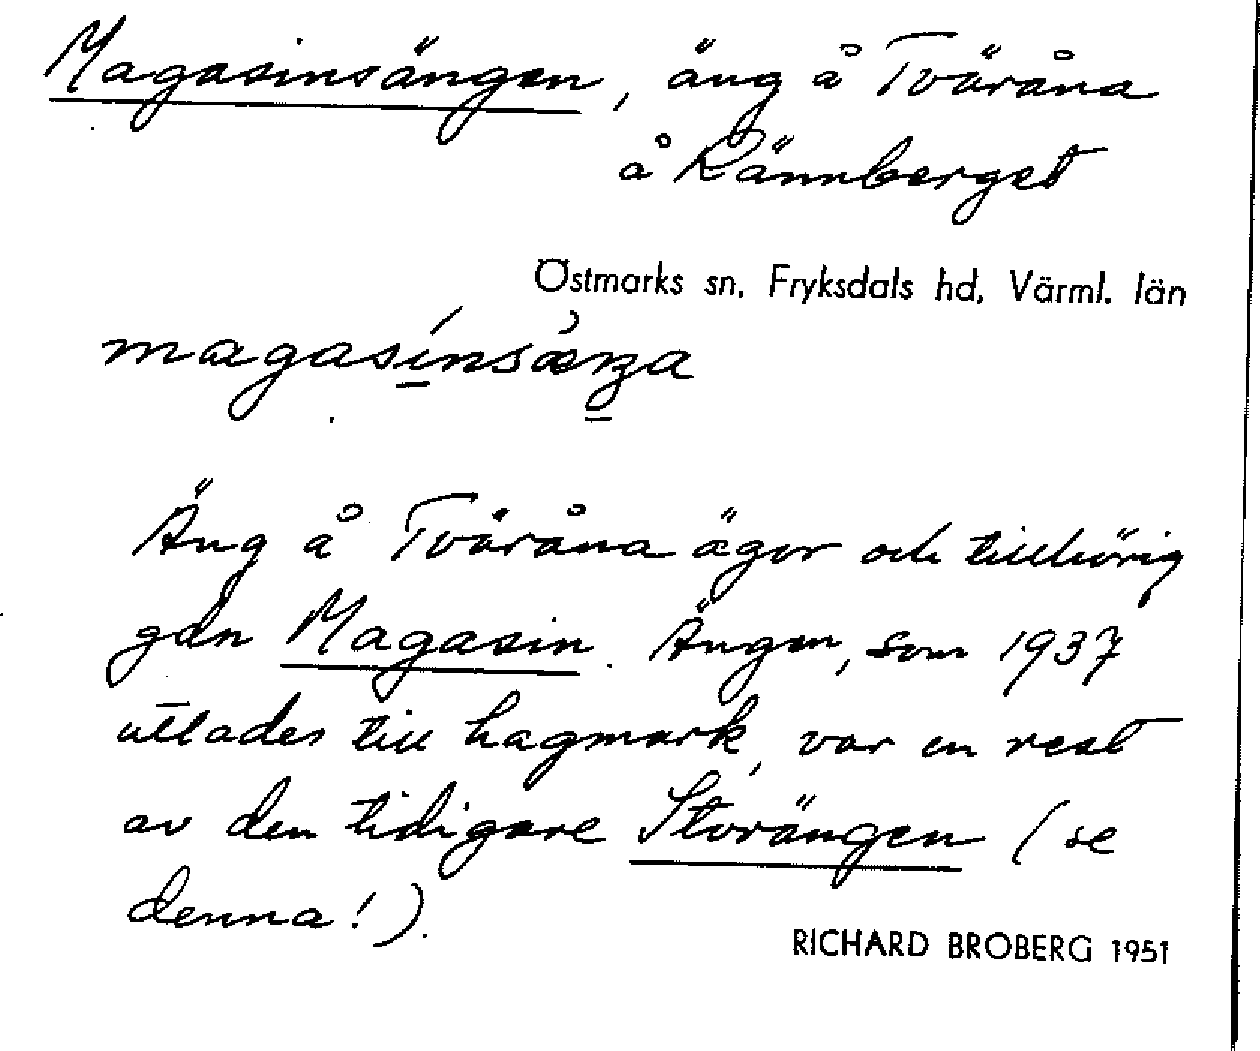 Magasinsängen, äng å Tväråna
å Rännberget
Östmarks sn, Fryksdals hd, Värml. län
Äng å Tväråna ägor och tillhörig
gdn Magasin. Ängen, som 1937
utlades till hagmark, var en rest
av den tidigare Storängen (se
denna!).
RICHARD BROBERG 1951